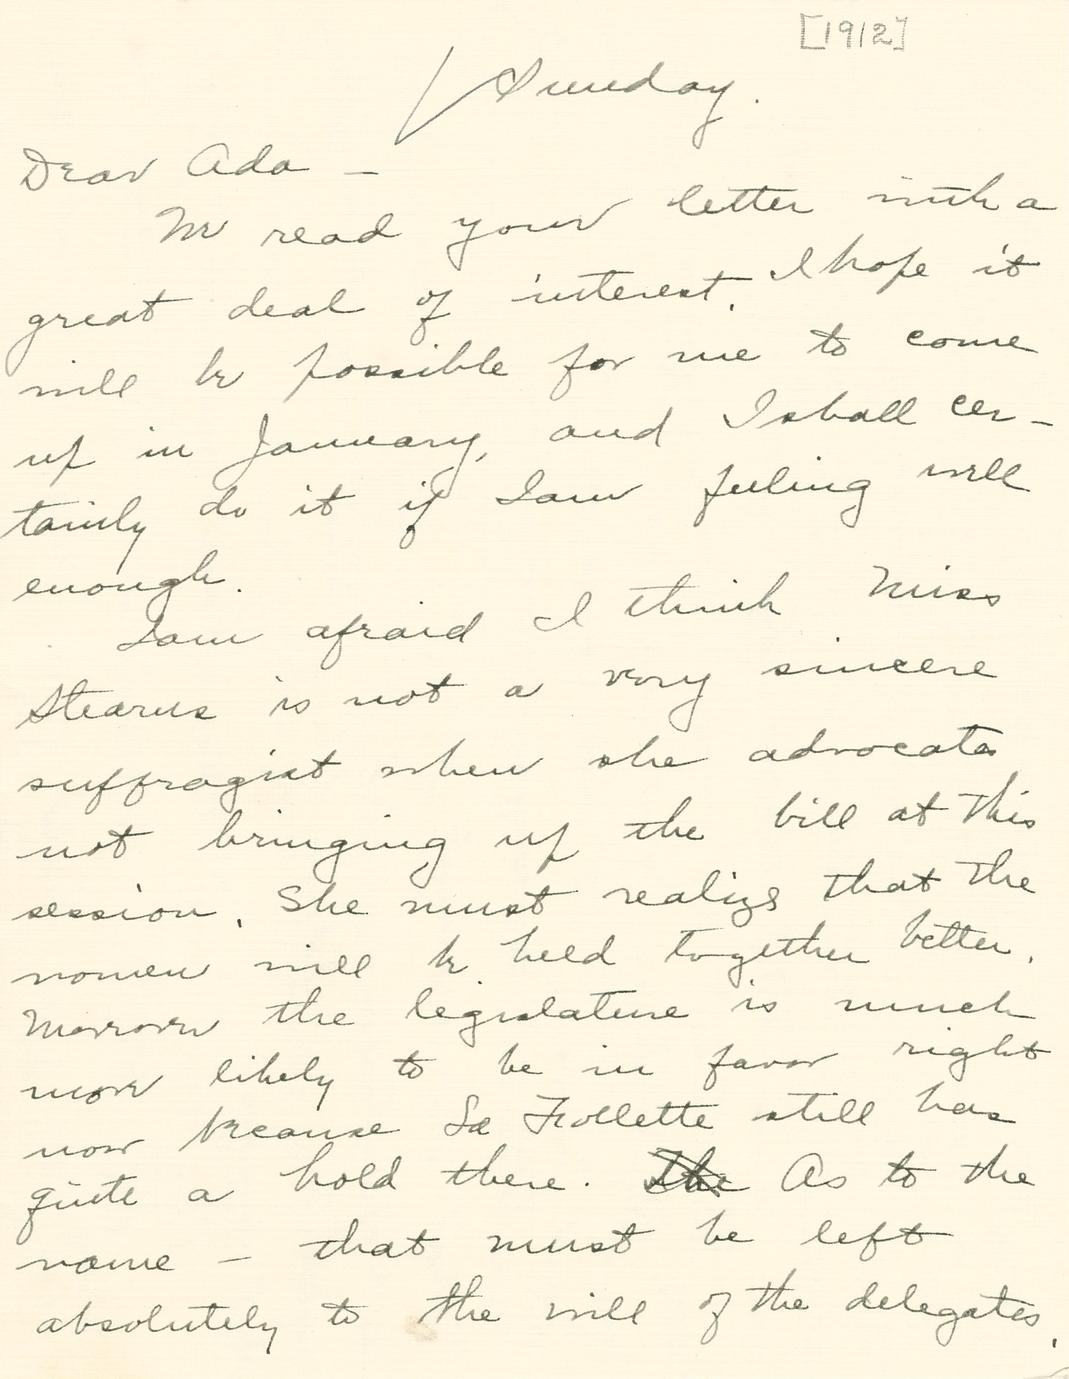 [1912]
Sunday.
Dear Ada —
We read your letter with a
great deal of interest. I hope it
will be possible for me to come
up in January, and I shall cer-
tainly do it if I am feeling well
enough.
I am afraid I think Miss
Stearns is not a very sincere
suffragist when she advocates
not bringing up the bill at this
session. She must realize that the
women will be held together better.
Moreover the legislature is much
more likely to be in favor right
now because La Follette still has
quite a hold there. The As to the
name — that must be left
absolutely to the will of the delegates.